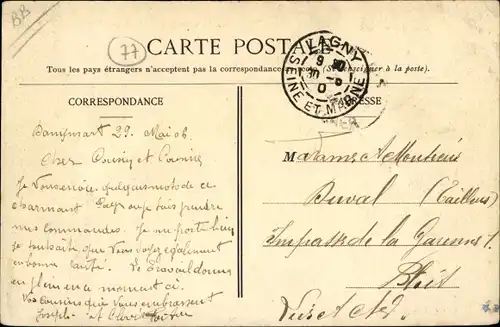 BB
77
CARTE POSTALE
Tous les pays étrangers n'acceptent pas la correspondance (Se renseigner à la poste).
LAGNY
SEINE ET MARNE
CORRESPONDANCE
ADRESSE
29 Mai 06
Cher Cousin et Cousine
Je vous envoie quelques mots de ce
charmant Pays ou je vais prendre
mes commandes. Je me porte bien
je souhaite que vous soyez également
en bonne santé. Le travail donne
en plein en ce moment ci.
Vos cousins qui vous embrassent
Joseph et
Madame et Monsieur
Duval (Tailleur)
Impasse de la Garenne 1